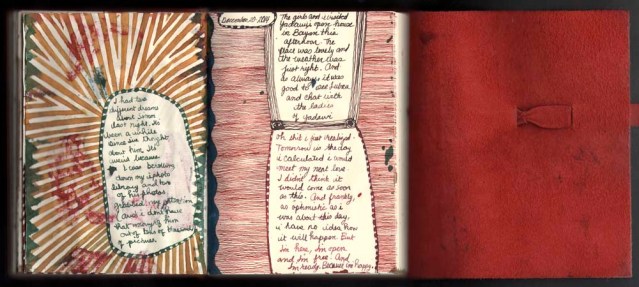 I had two
different dreams
about Simon
last night. Its
been a while
since ive thought
about him. Its
weird because
I was browsing
down my iphoto
library and two
of his photos
grabbed my attention
(and i dont have
that many of him
out of tens of thousands
of pictures.
December 10 2014
The girls and i visited
Yadawi's open house
in Bayside this
afternoon. The
place was lovely and
the weather was
just right. And
as always it was
good to see Lubna
and chat with
the ladies
of Yadawi
oh shit i just realized.
Tomorrow is the day
i calculated i would
meet my next love.
I didn't think it
would come as soon
as this. And frankly,
as optimistic as i
was about this day,
i have no idea how
it will happen. But
Im here, Im open
and Im free. And
Im ready. Because im happy.